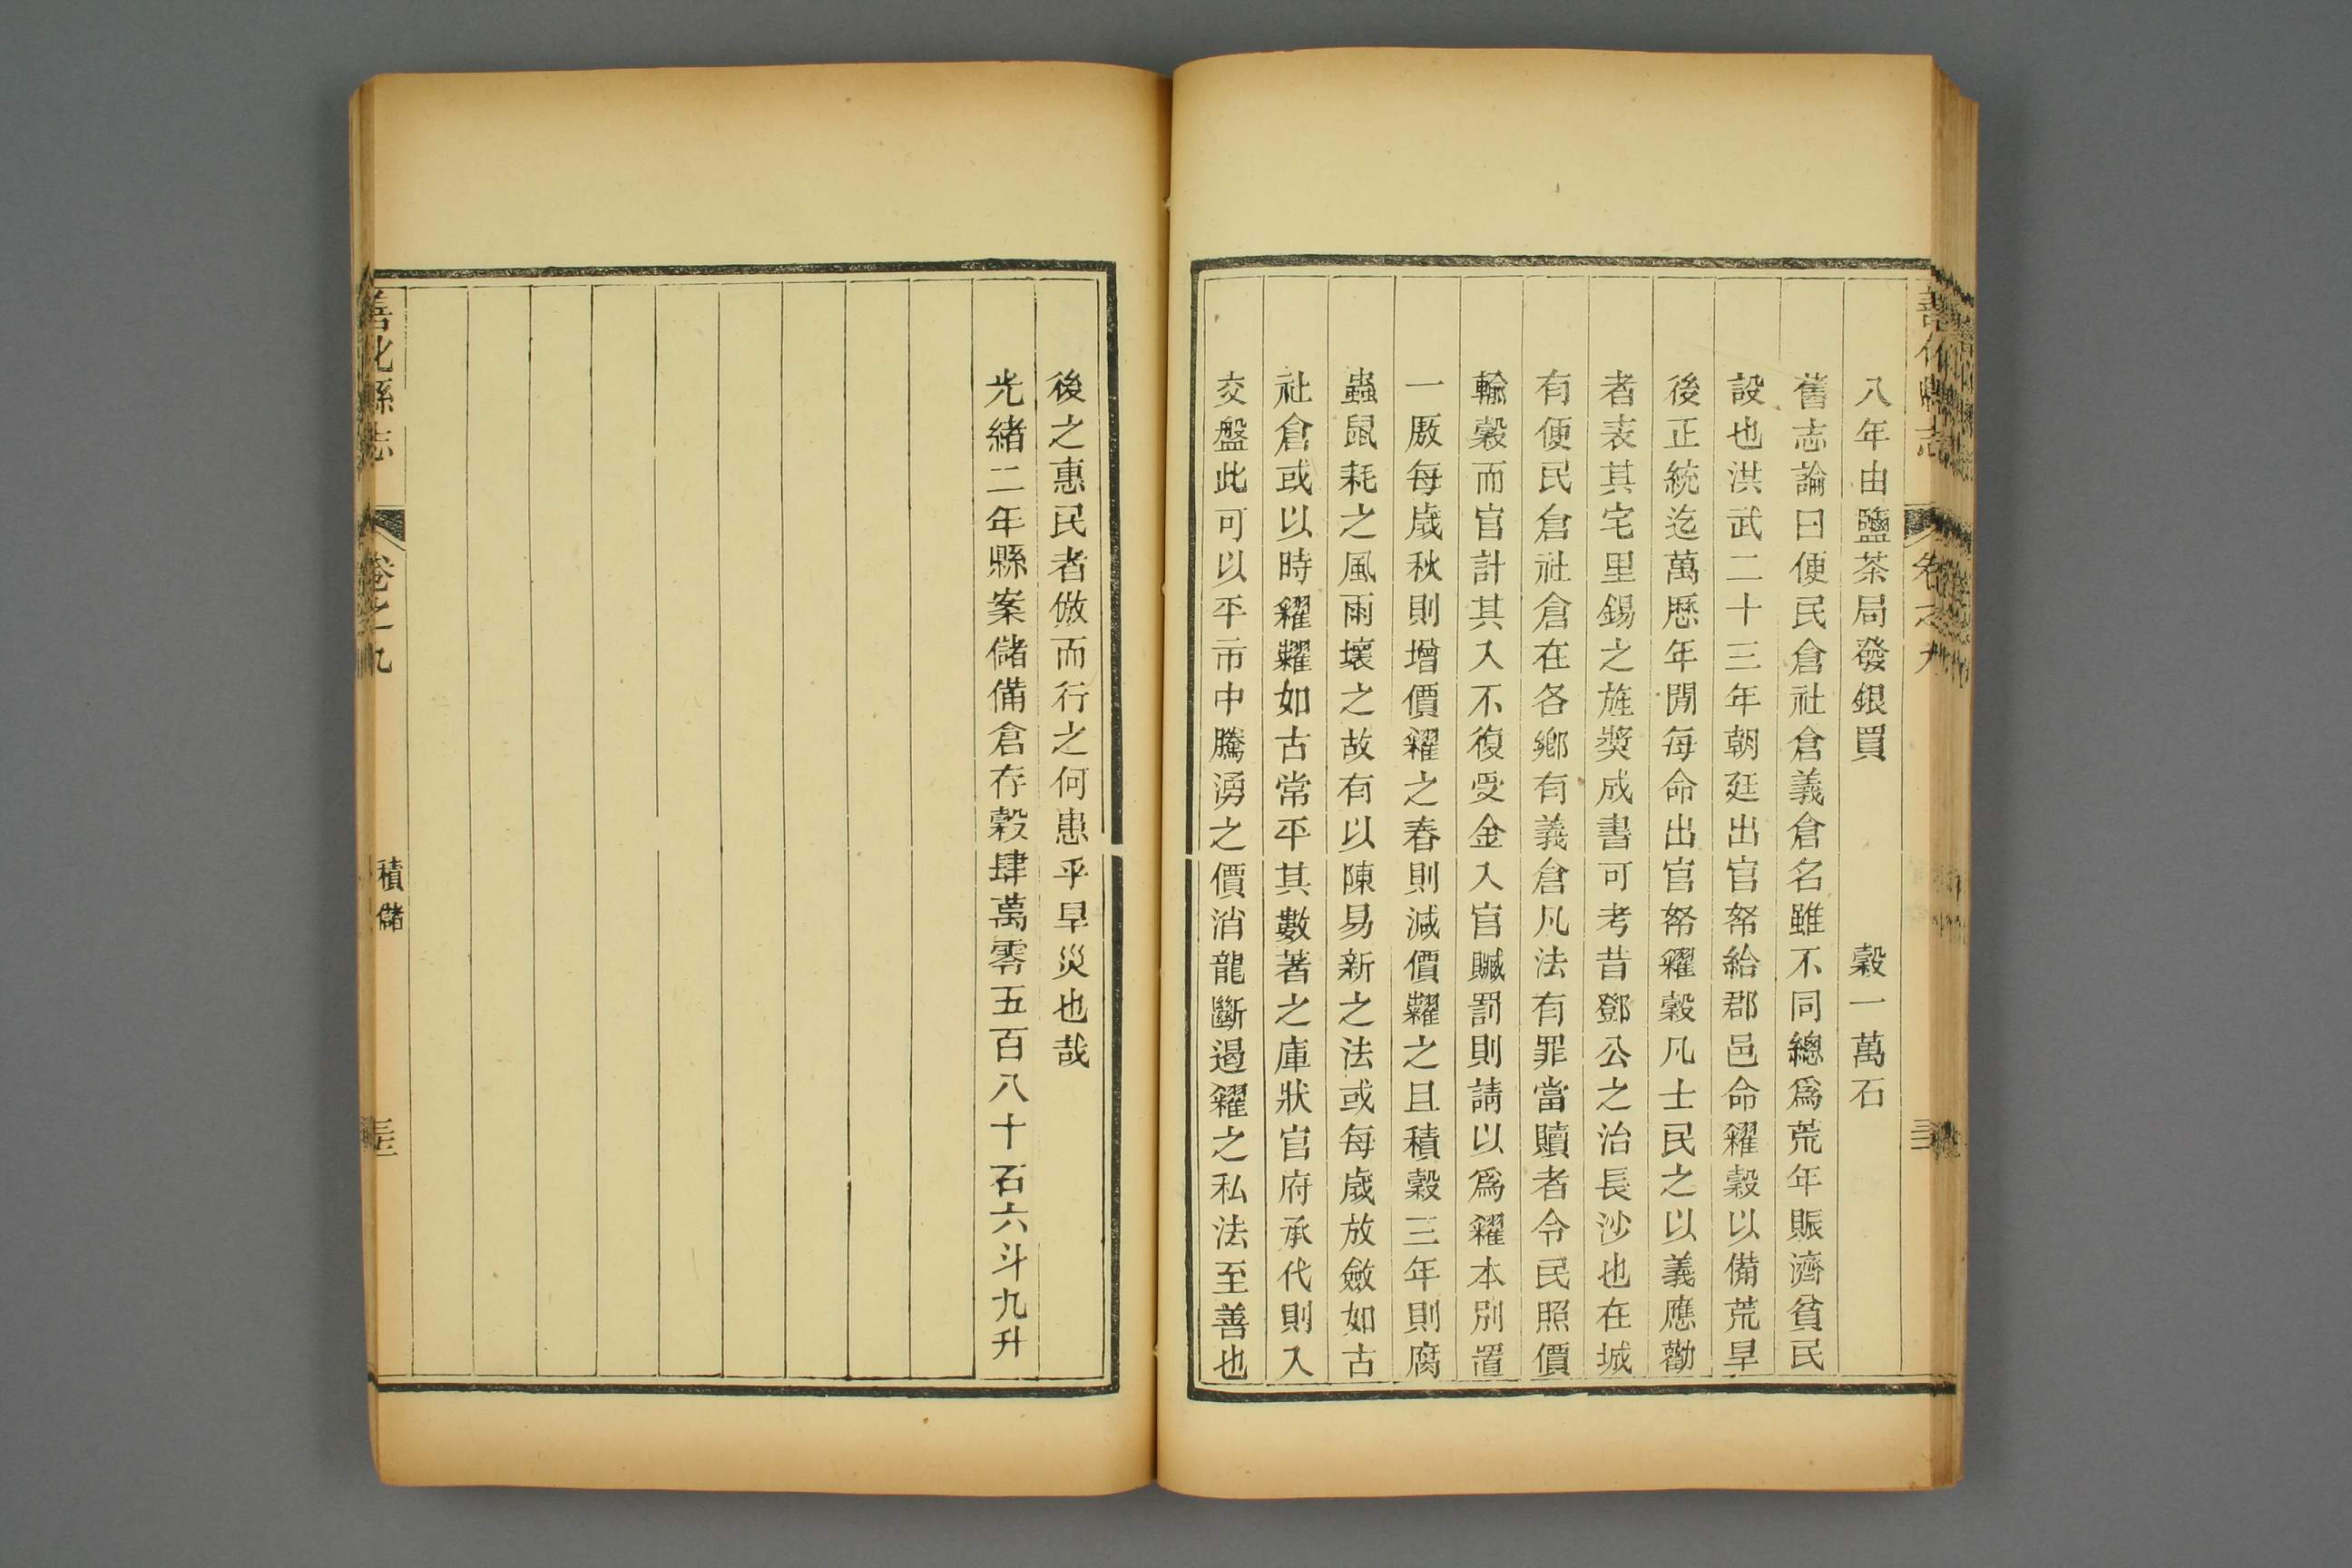 善化縣志 卷之九
八年由鹽茶局發銀買 穀一萬石
舊志論曰便民倉社倉義倉名雖不同總爲荒年賑濟貧民
設也洪武二十三年朝廷出官帑給郡邑命糴穀以備荒旱
後正統迄萬厯年閒每命出官帑糴穀凡士民之以義應勸
者表其宅里錫之旌奬成書可考昔鄧公之治長沙也在城
有便民倉社倉在各鄉有義倉凡法有罪當贖者令民照價
輸穀而官計其入不復受金入官贓罰則請以爲糴本別置
一厫每歲秋則增價糴之春則減價糶之且積穀三年則腐
蟲鼠耗之風雨壞之故有以陳易新之法或每歲放斂如古
社倉或以時糴糶如古常平其數著之庫狀官府承代則入
交盤此可以平市中騰湧之價消龍斷遏糴之私法至善也
後之惠民者倣而行之何患乎旱災也哉
光緒二年縣案儲備倉存穀肆萬零五百八十石六斗九升
善化縣志 卷之九 積儲